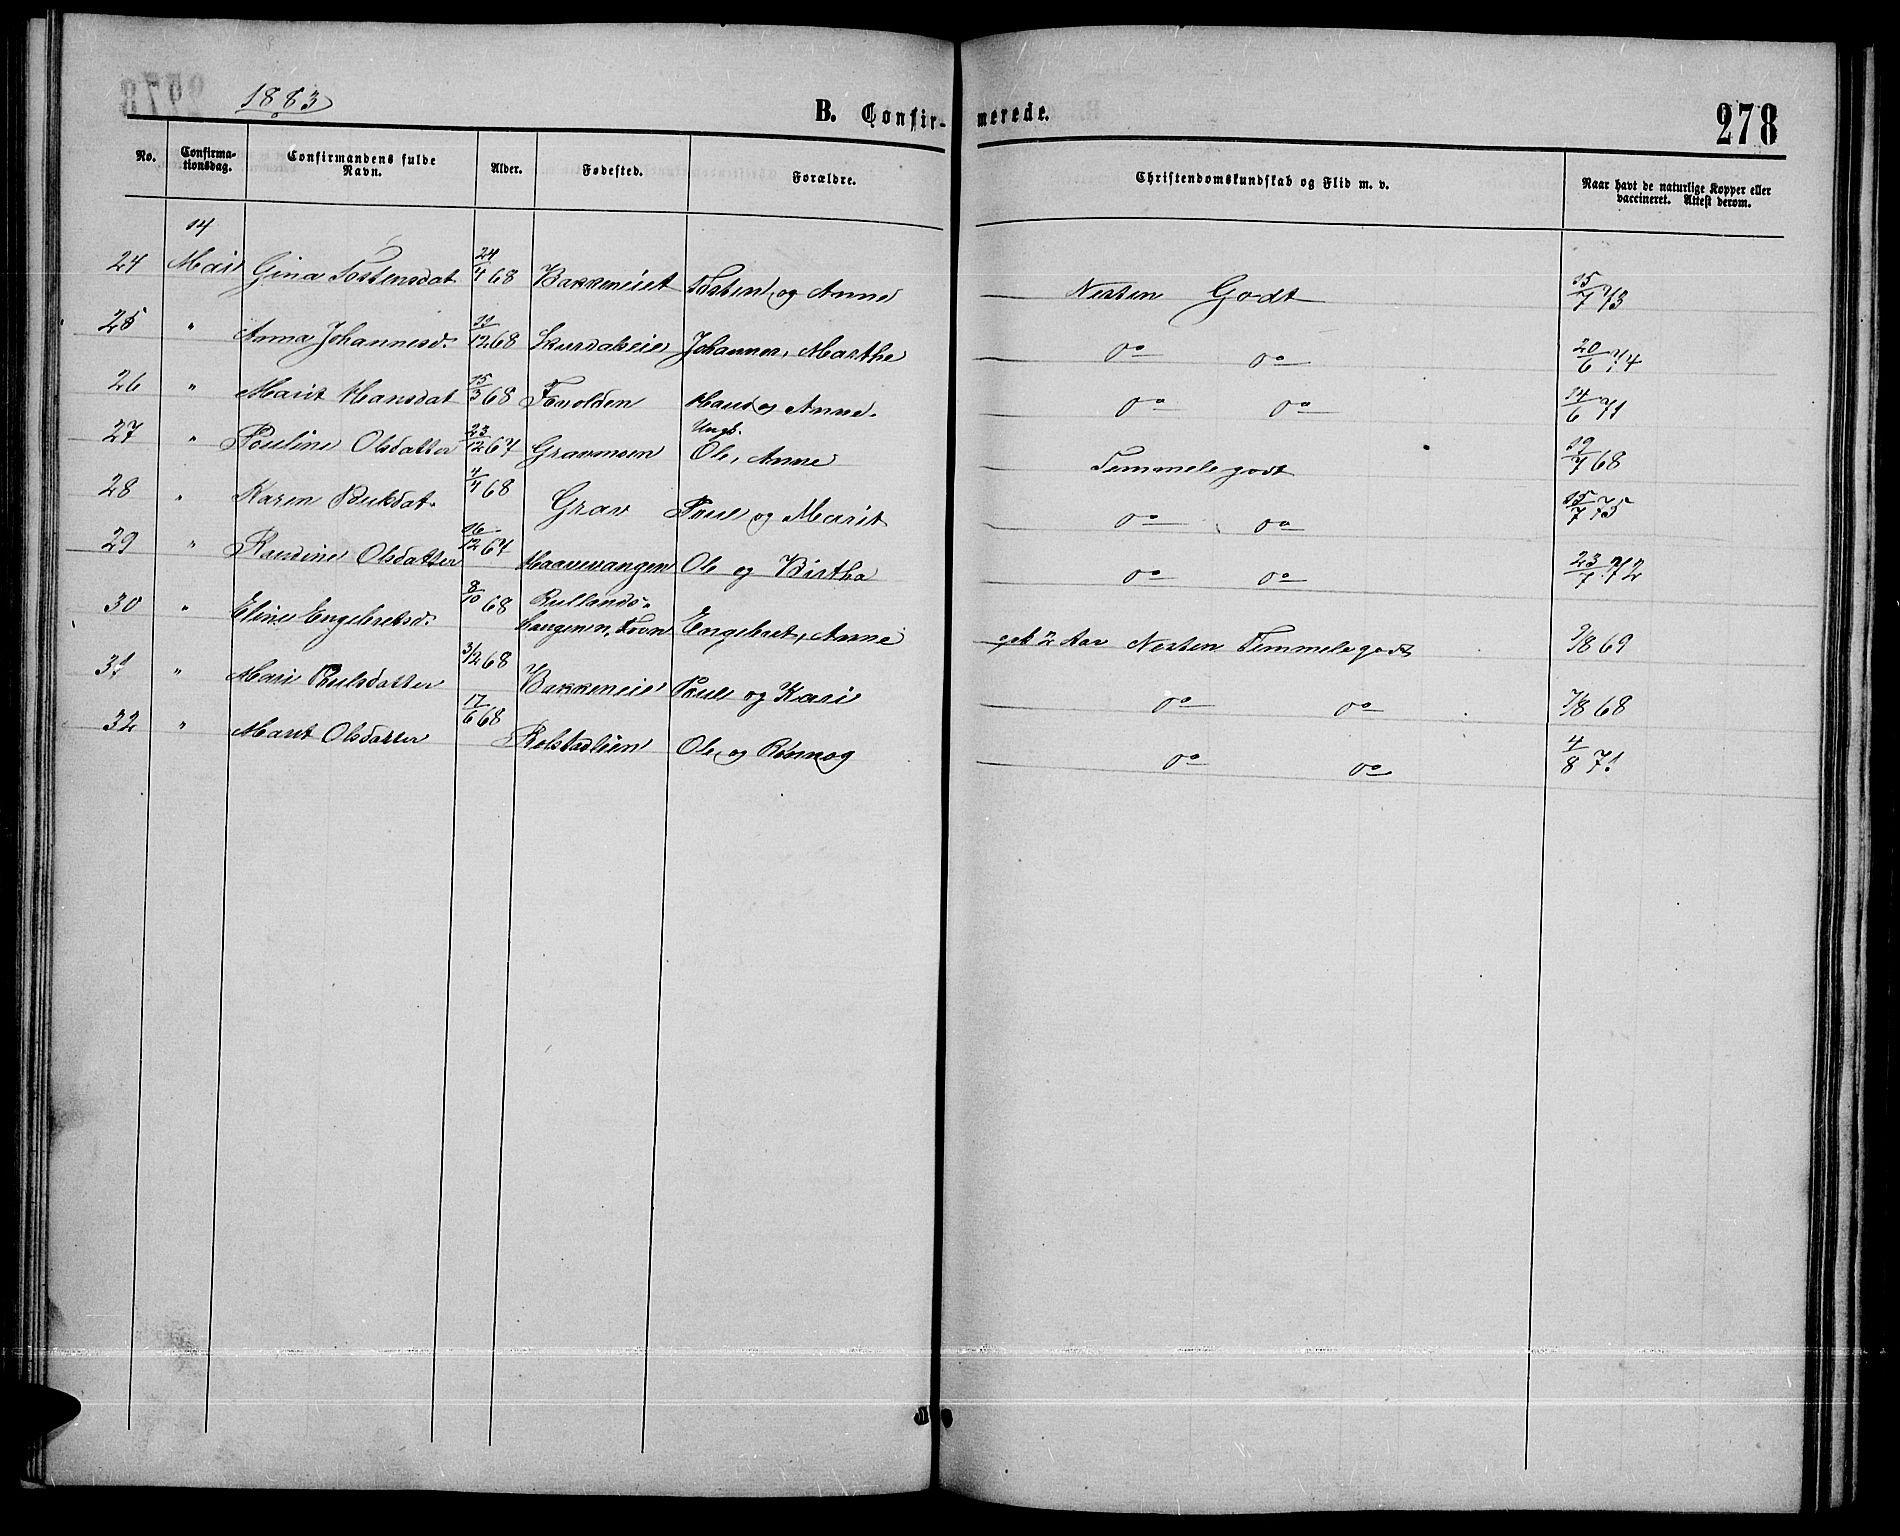 1883
B. Confirmerede.
278
No. Confirmationsdag. Confirmandens fulde Navn. Alder. Fødested. Forældre. Christendomskundskab og Flid m. v. Naar havt de naturlige Kopper eller vaccineret. Attest derom.
14
24 Mai Gina Tostensdat 24/4 68 Bakkeneiet Tosten og Anne Nesten Godt 15/7 73
25 " Anna Johannesd. 11/12 68 Johannes, Marthe do do 20/6 74
26 " Marit Hansdat 15/3 68 Hans og Anne. do do 14/6 71
Ungk.
27 " Pouline Olsdatter 23/12 67 Gravmoen Ole, Anne Temmele godt 19/7 68
28 " Karen 4/4 68 Grav Poul og Marit do do 15/7 75
29 " Olsdatter 16/12 67 Maavevangen Ole og Birtha do do 23/7 72
30 " Eline Engebretsd. 8/10 68 Rullands- haugen n. Fron Engebret, Anne gst 2 Aar Nesten Temmele godt 9/8 69
31 " Mari Poulsdatter 3/12 68 Bakkeneie Poul og Kari do do 7/8 68
32 " Marit Olsdatter 17/6 68 Rolstadlien Ole og Rønnog do do 4/8 71